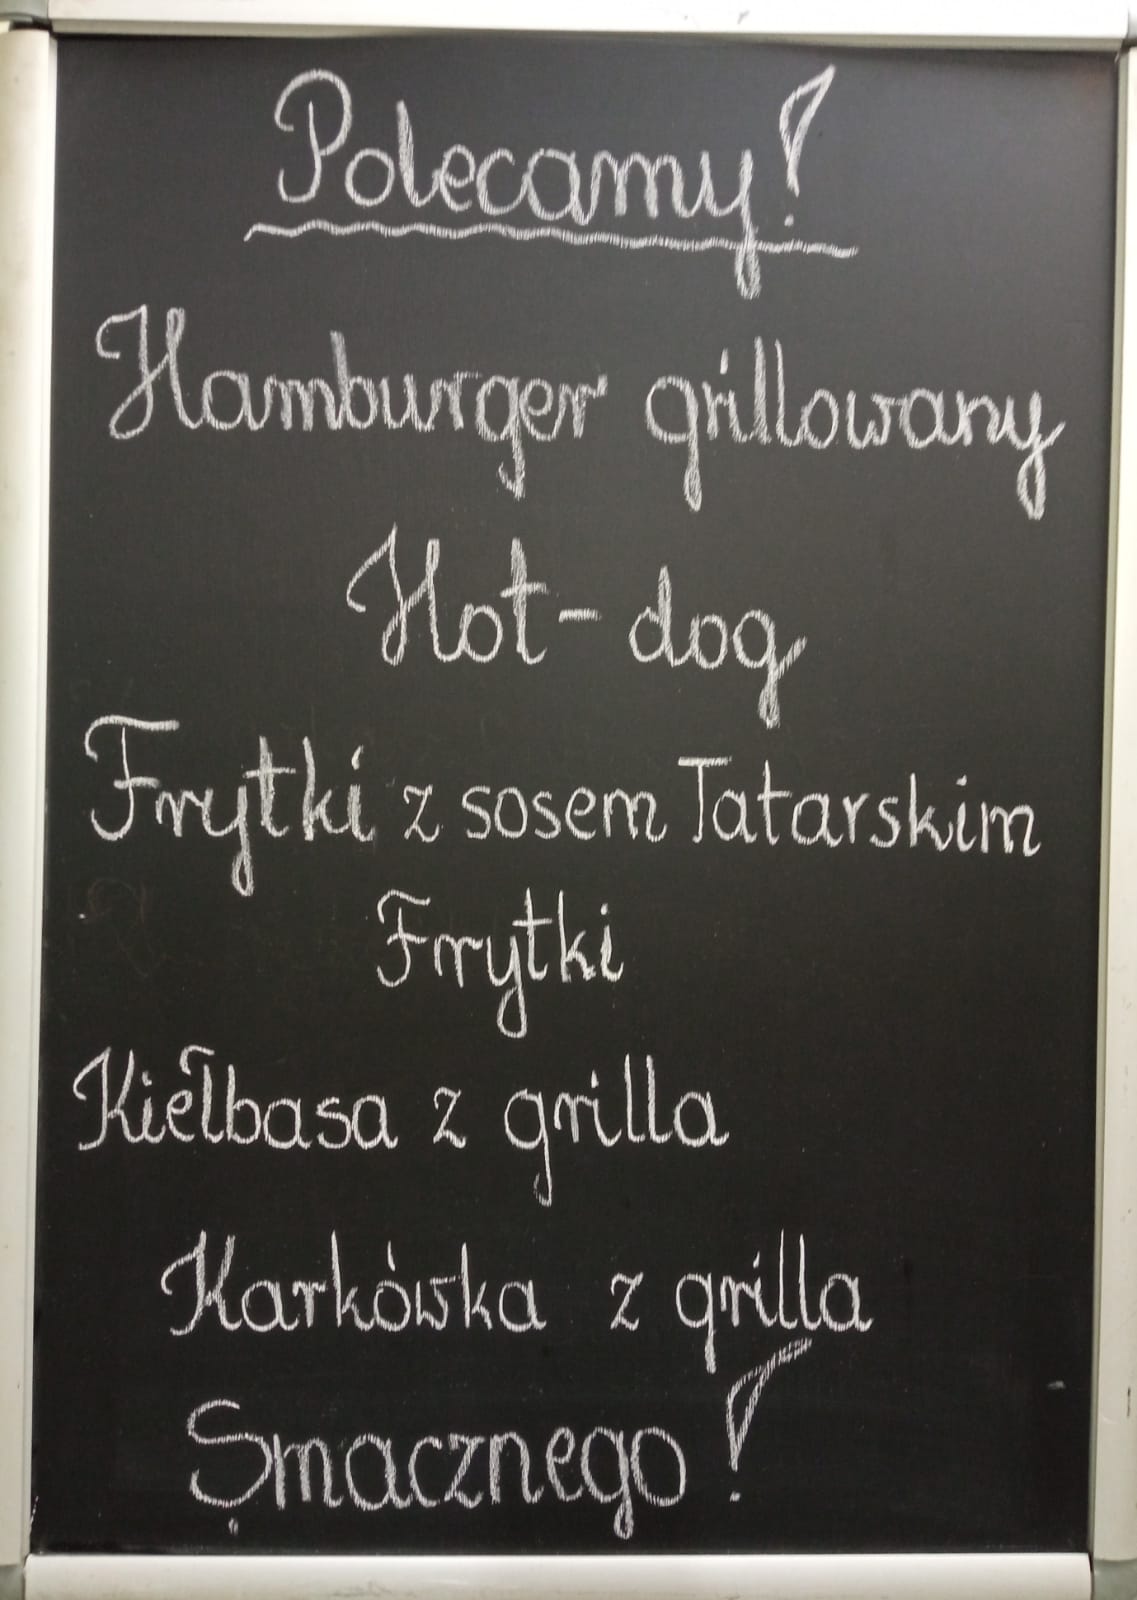 Polecamy!
Hamburger grillowany
Hot-dog
Frytki z sosem Tatarskim
Frytki
Kiełbasa z grilla
Karkówka z grilla
Smacznego!